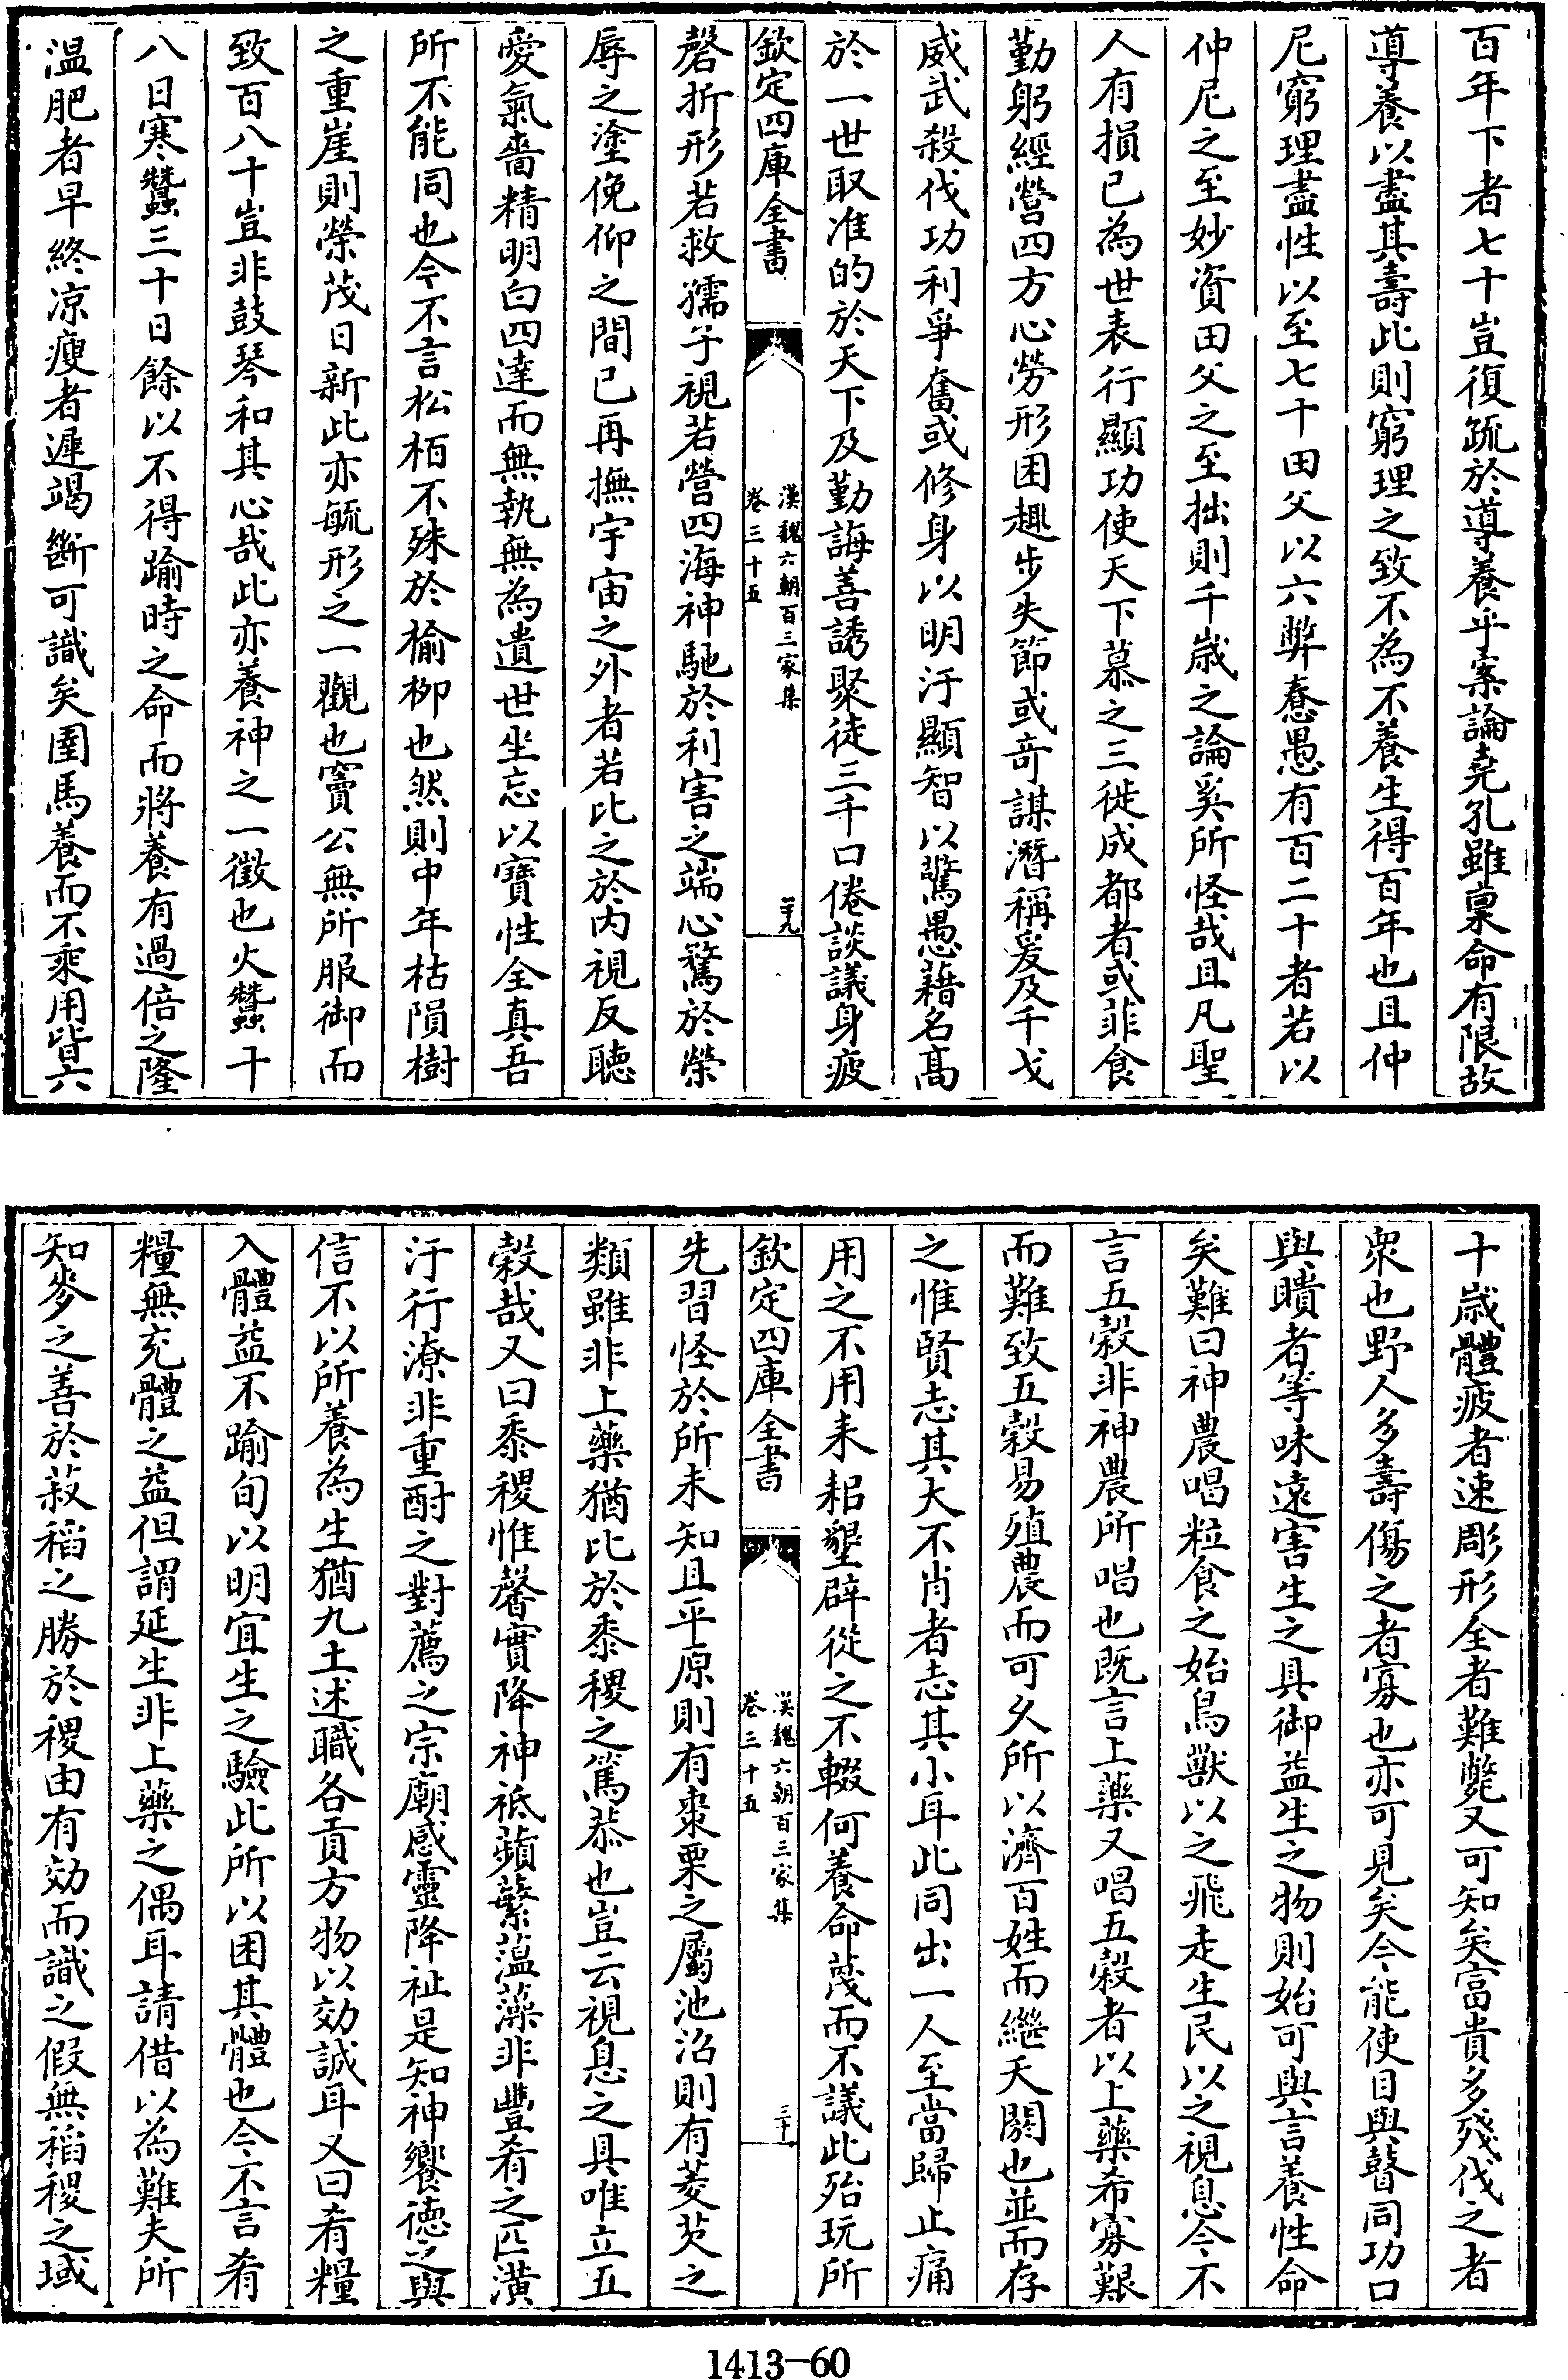 百年下者七十豈復疏於導養乎案論堯孔雖稟命有限故
導養以盡其壽此則窮理之致不為不養生得百年也且仲
尼窮理盡性以至七十田父以六弊惷愚有百二十者若以
仲尼之至妙資田父之至拙則千歲之論奚所怪哉且凡聖
人有損已為世表行顯功使天下慕之三徙成都者或菲食
勤躬經營四方心勞形困趣步失節或竒謀潛稱爰及干戈
威武殺伐功利爭奮或修身以明汙顯智以驚愚藉名髙
於一世取准的於天下及勤誨善誘聚徒三千口倦談議身疲
欽定四庫全書
漢魏六朝百三家集
卷三十五
二十九
磬折形若救孺子視若營四海神馳於利害之端心騖於榮
辱之塗俛仰之間已再撫宇宙之外者若比之於内視反聽
愛氣嗇精明白四達而無執無為遺世坐忘以寶性全真吾
所不能同也今不言松栢不殊於榆栁也然則中年枯隕樹
之重崖則榮茂日新此亦毓形之一觀也竇公無所服御而
致百八十豈非鼓琴和其心哉此亦養神之一徵也火蠶十
八日寒蠶三十日餘以不得踰時之命而將養有過倍之隆
温肥者早終凉瘦者遲竭斷可識矣圉馬養而不乘用皆六
十歲體疲者速彫形全者難斃又可知矣富貴多殘伐之者
衆也野人多壽傷之者寡也亦可見矣今能使目與瞽同功口
與聵者等味遠害生之具御益生之物則始可與言養性命
矣難曰神農唱粒食之始鳥獸以之飛走生民以之視息今不
言五穀非神農所唱也既言上藥又唱五穀者以上藥希寡艱
而難致五穀易殖農而可久所以濟百姓而繼夭閼也並而存
之惟賢志其大不肖者志其小耳此同出一人至當歸止痛
用之不用耒耜墾辟從之不輟何養命蔑而不議此殆玩所
欽定四庫全書
漢魏六朝百三家集
卷三十五
三十
先習怪於所未知且平原則有棗栗之屬池沼則有菱芡之
類雖非上藥猶比於黍稷之篤恭也豈云視息之具唯立五
穀哉又曰黍稷惟馨實降神祗蘋蘩蕰藻非豐肴之匹潢
汙行潦非重酎之對薦之宗廟感靈降祉是知神饗德之與
信不以所養為生猶九土述職各貢方物以効誠耳又曰肴糧
入體益不踰旬以明宜生之驗此所以困其體也今不言肴
糧無充體之益但謂延生非上藥之偶耳請借以為難夫所
知麥之善於菽稻之勝於稷由有効而識之假無稻稷之域
1413-60